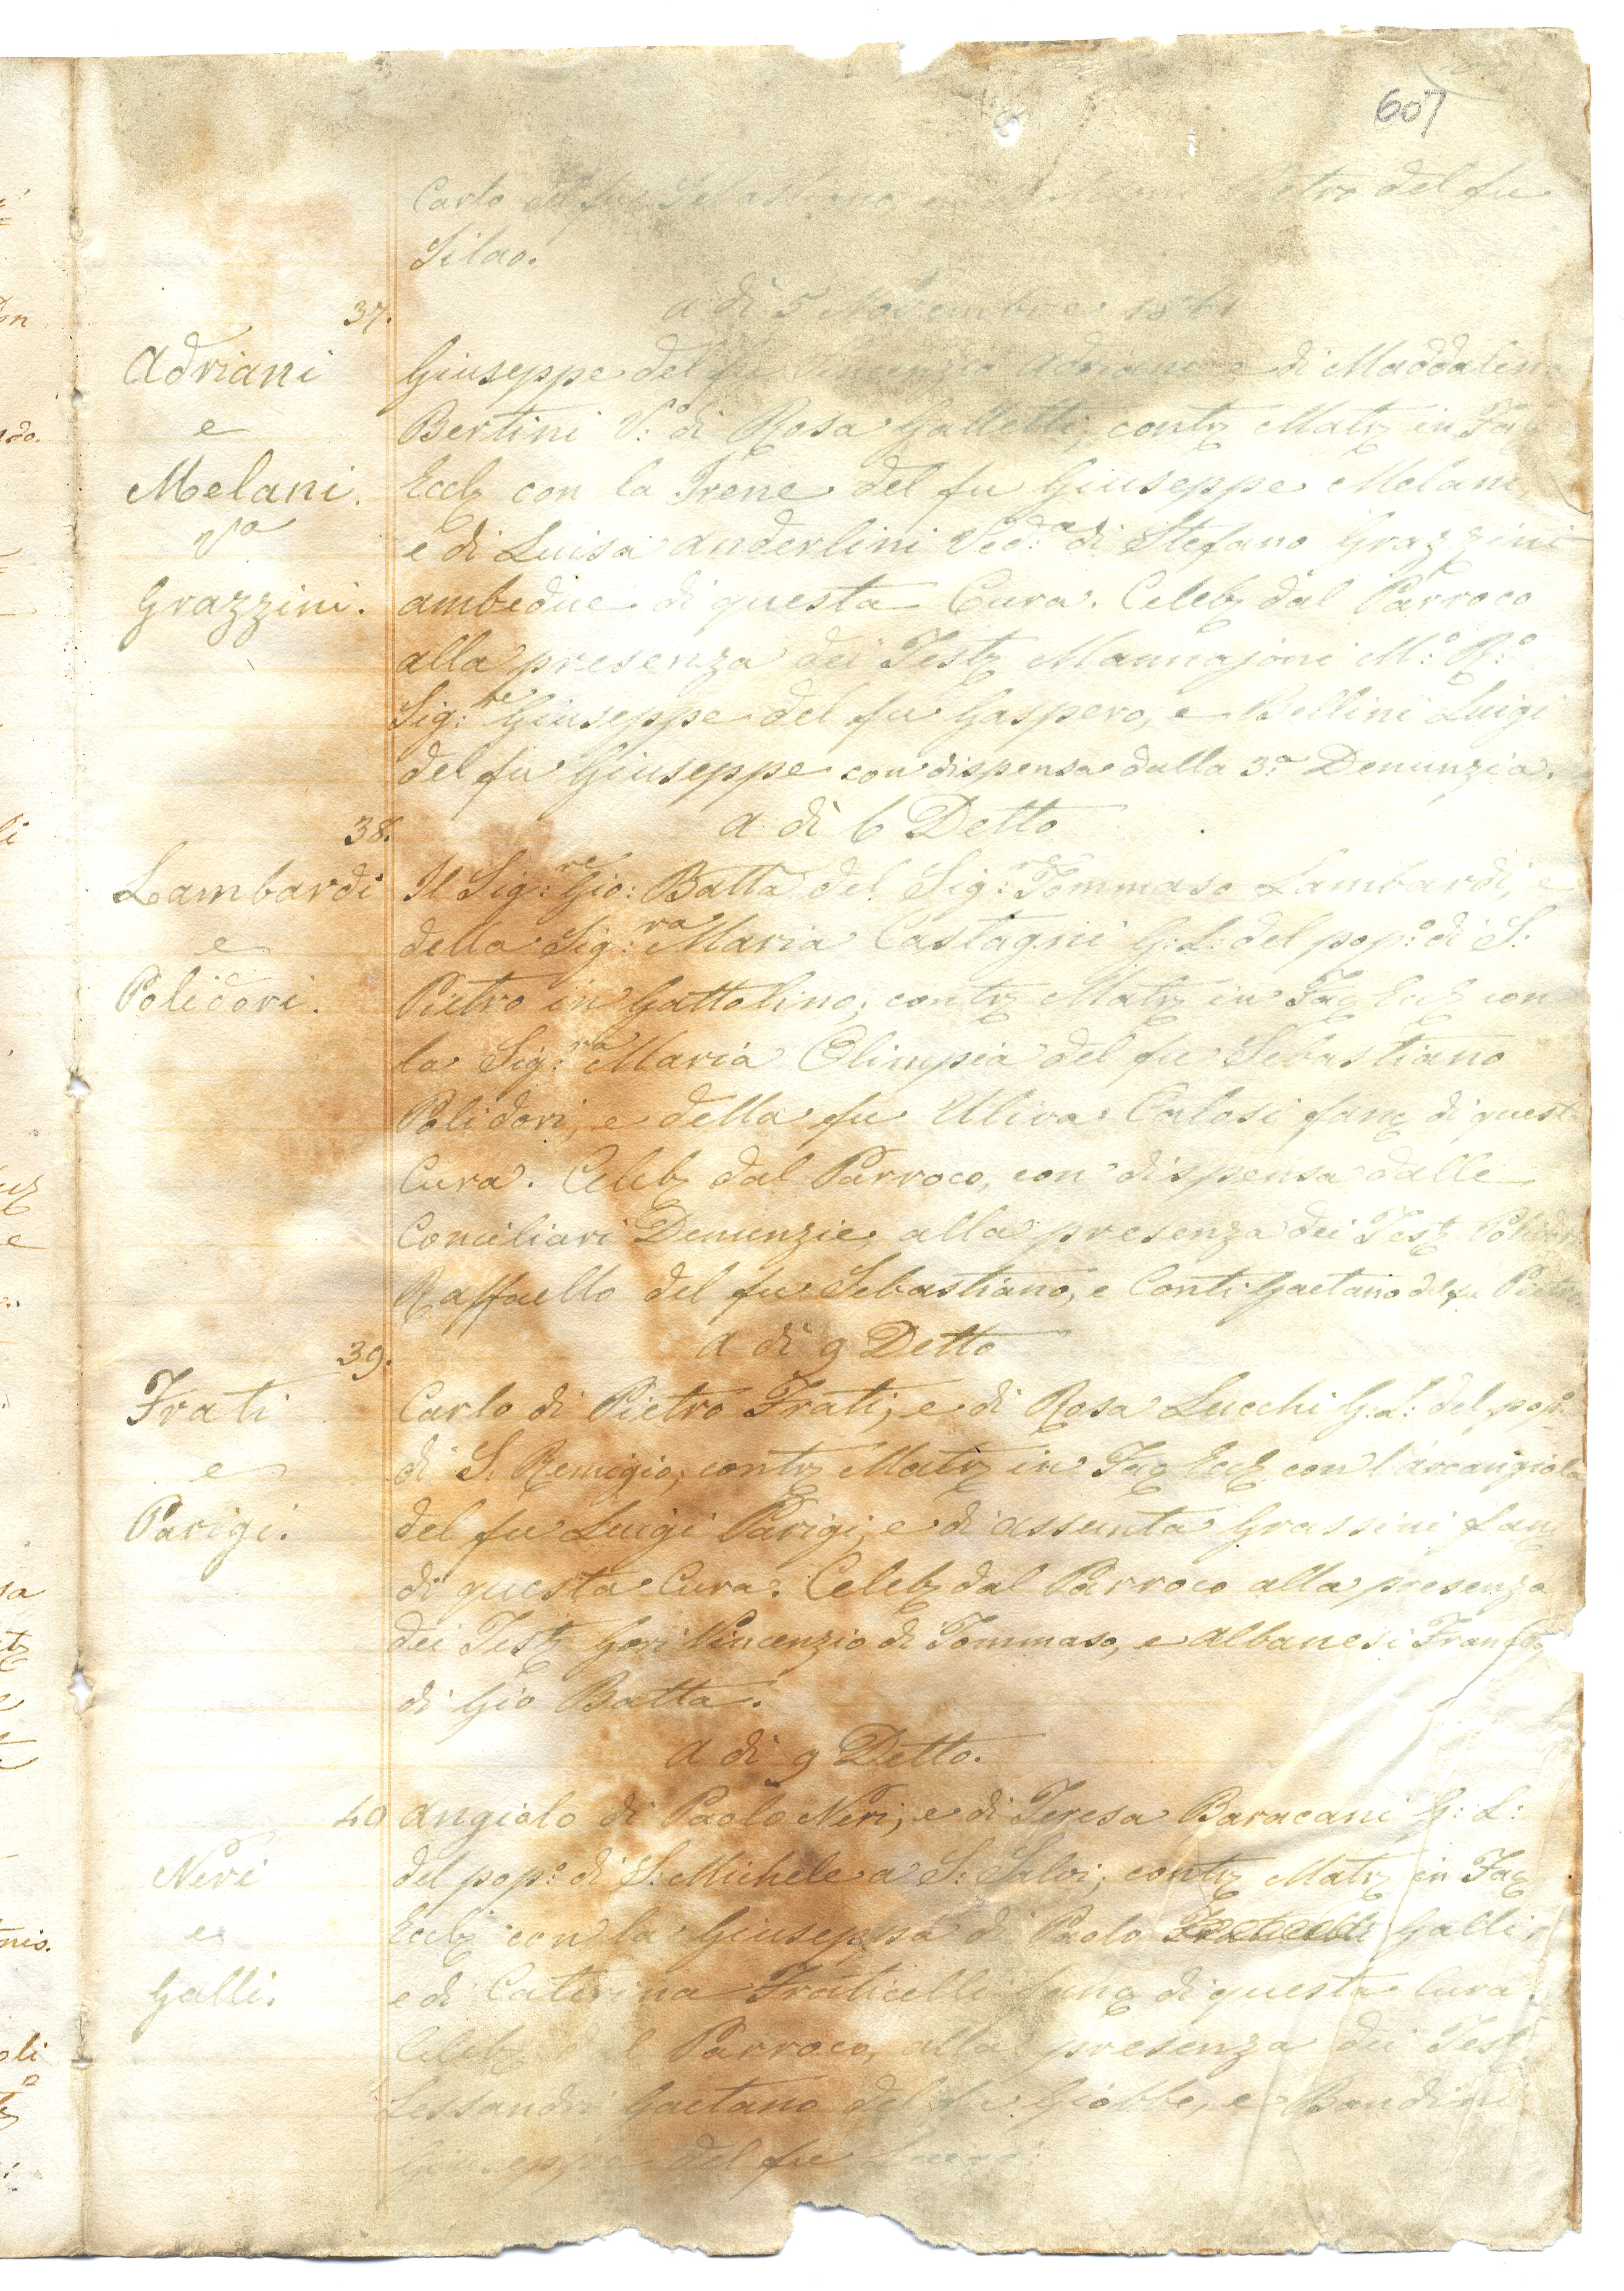 607
Carlo del fu Sebastiano e Pietro del fu
Silao.
a dì 5 Novembre 1861
37.
Adriani
e
Melani.
Va
Grazzini.
Giuseppe del fu Vincenzio Adriani e di Maddalena
Bertini V.º di Rosa Galletti, contz Matz in Facz
Ecclz con la Irene del fu Giuseppe Melani,
e di Luisa Anderlini Ved:ª di Stefano Grazzini
ambedue di questa Cura. Celebz dal Parroco
alla presenza dei Testz Mannajoni M:º R:º
Sig:re Giuseppe del fu Gaspero, e Bellini Luigi
del fu Giuseppe con dispensa dalla 3:ª Denunzia.
a dì 6 Detto
38.
Lambardi
e
Polidori.
Il Sig:re Gio: Batta del Sig:re Tommaso Lambardi, e
della Sig:ra Maria Castagni G: L: del pop:º di S:
Pietro in Gattolino; contz Matz in Facz Eccz con
la Sig:ra Maria Olimpia del fu Sebastiano
Polidori, e della fu Uliva Calosi fanz di questa
Cura. Celebz dal Parroco, con dispensa dalle
Conciliari Denunzie, alla presenza dei Testz Polidori
Raffaello del fu Sebastiano, e Conti Gaetano del fu Pietro
a dì 9 Detto
39.
Frati
e
Parigi.
Carlo di Pietro Frati, e di Rosa Lucchi G: L: del pop:º
di S. Remigio; contz Matz in Facz Eccz con l'Arcangiola
del fu Luigi Parigi, e di Assunta Grassini fanz
di questa Cura. Celebz dal Parroco alla presenza
dei Testz Gori Vincenzio di Tommaso, e Albanesi Francz
di Gio Batta.
a dì 9 Detto.
40
Neri
e
Galli.
Angiolo di Paolo Neri, e di Teresa Baracani G: L:
del pop:º di S: Michele a S: Salvi; contz Matz in Facz
Ecclz con la Giuseppa di Paolo Galli,
e di Caterina Fraticelli fanz di questa Cura.
Celebz dal Parroco, alla presenza dei Testz
Lessandri Gaetano del fu Giobbe, e Bandini
Giuseppe del fu Luigi.